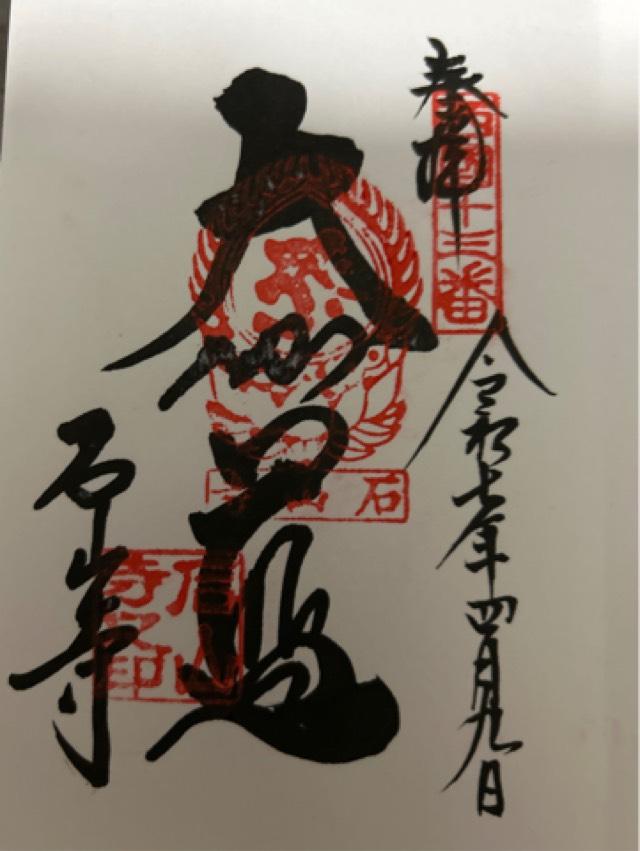 奉拝
西国十三番
令和七年四月九日
大伽藍
石山寺
石山寺
石山寺之印